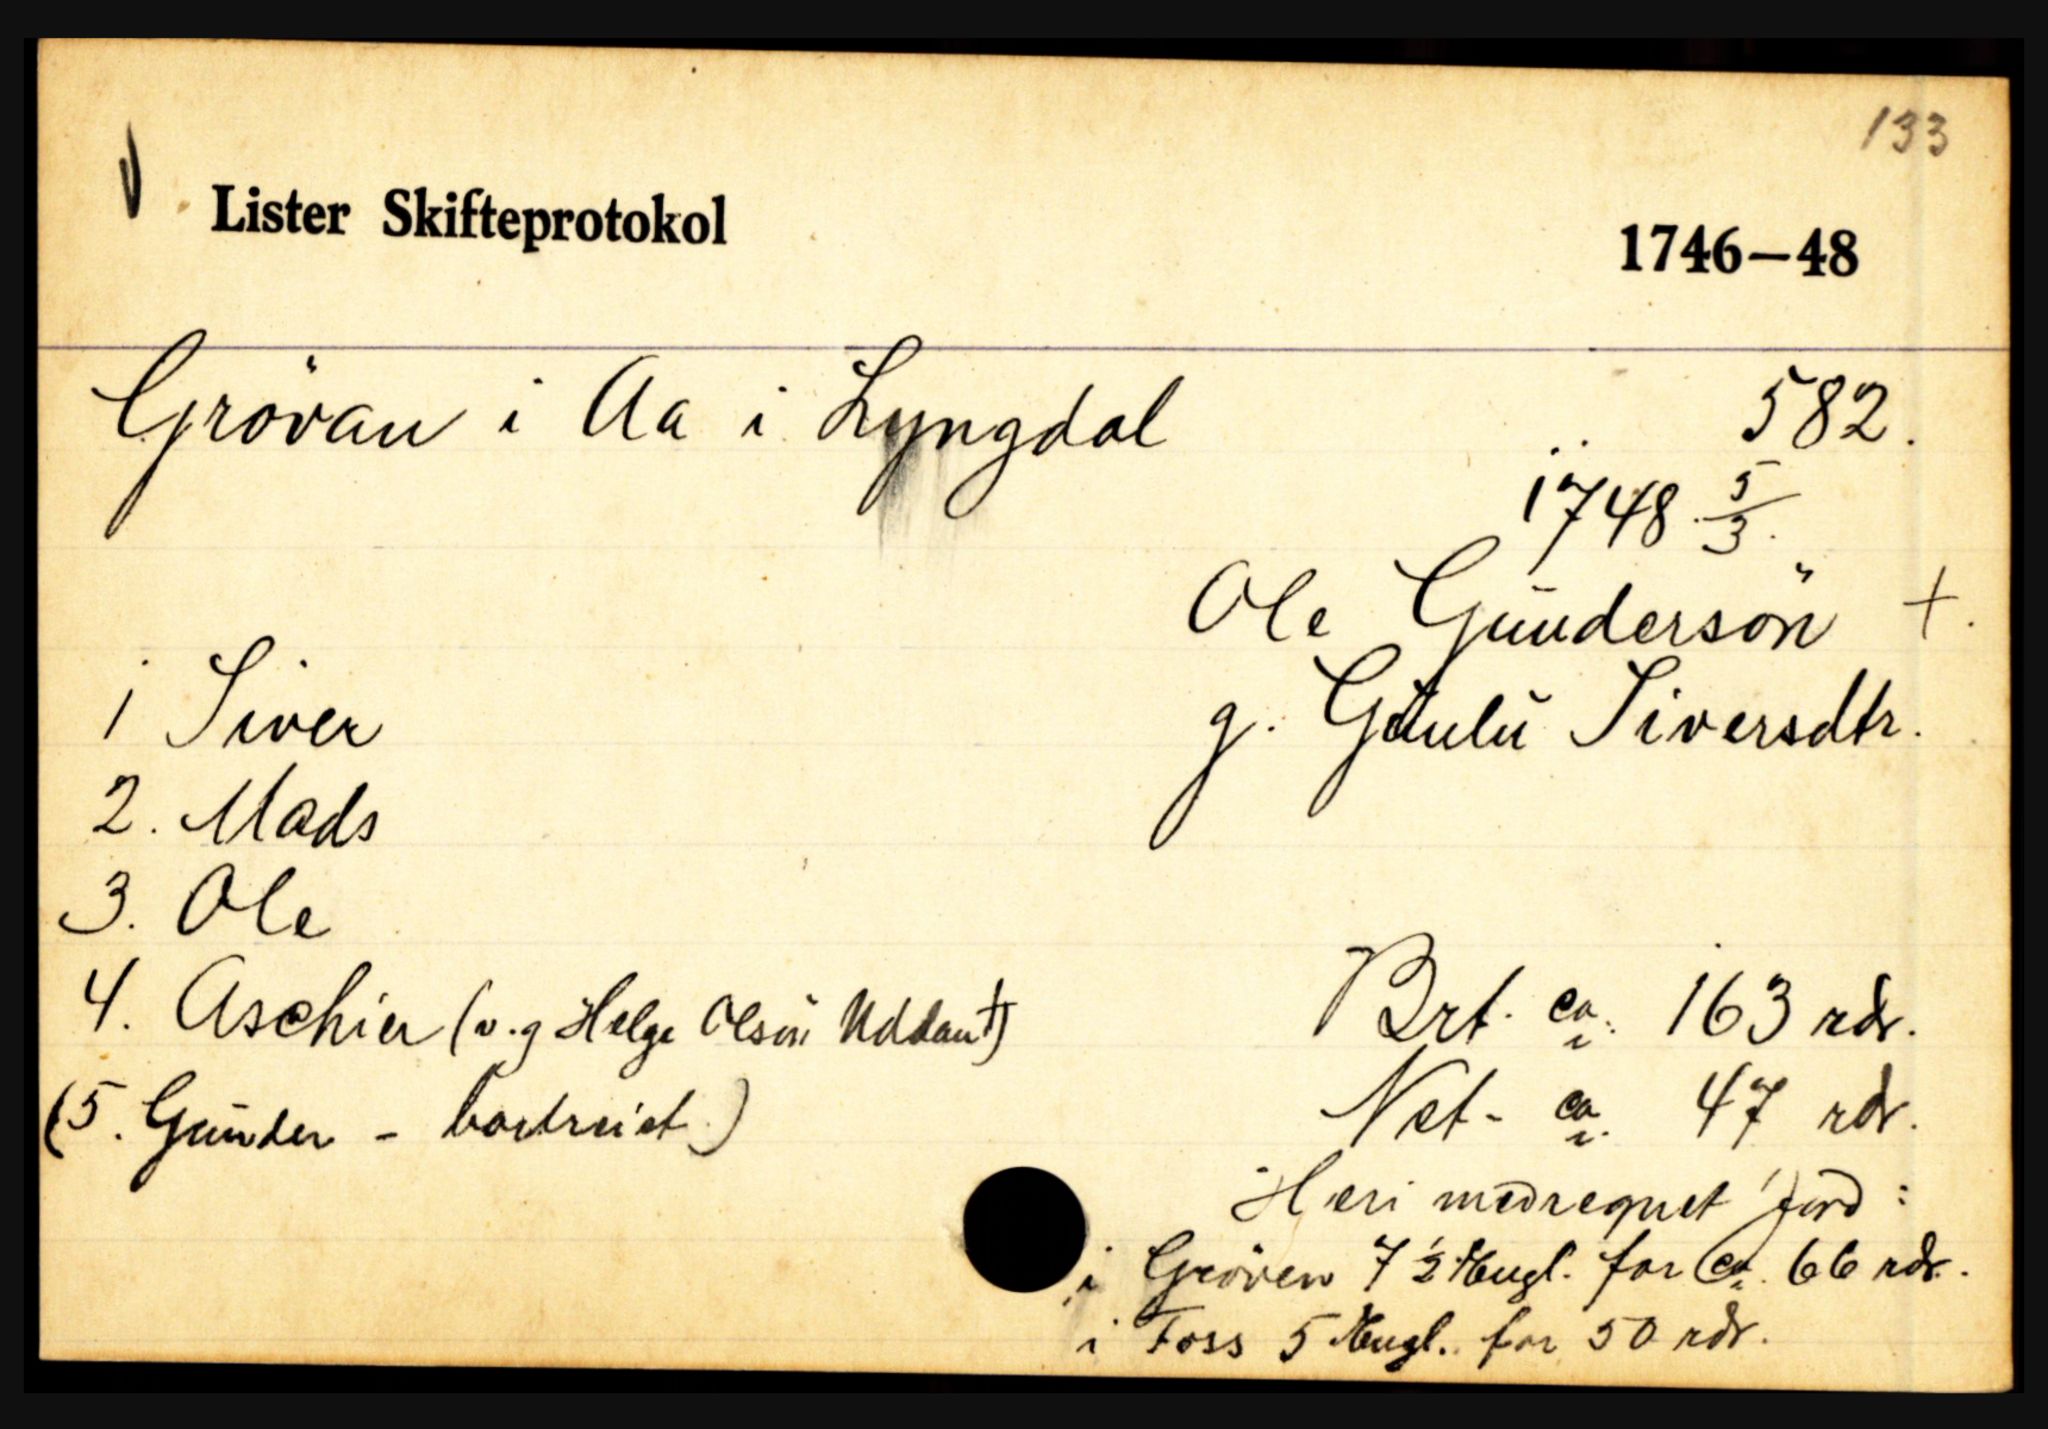 133
Lister Skifteprotokol 1746-48
Grövan i Aa i Lyngdal 582.
1748 5/3.
Ole Gundersön +.
g. Gunlu Siversdtr.
1 Siver
2. Mads
3. Ole
4. Aschier (v. g Helge Olsön +)
(5. Gunder - bortreist.)
Brt. ca. 163 rdr.
Net- ca. 47 rdr.
Heri medregnet jord:
i Gröven 7 1/2 Eugl. for ca. 66 rdr.
i Foss 5 Eugl. for 50 rdr.